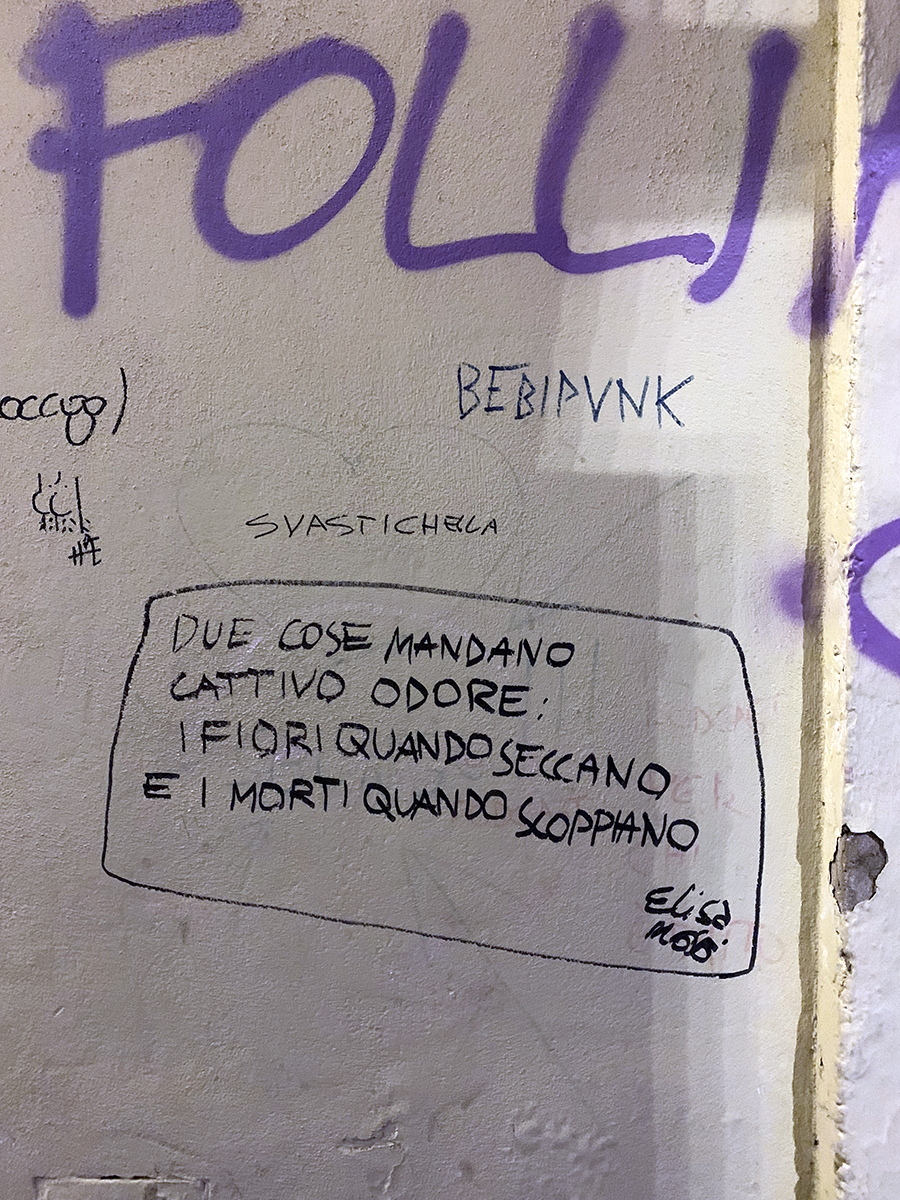 FOLLI
occupo)
BEBIPVNK
SVASTICHELLA
DUE COSE MANDANO
CATTIVO ODORE:
I FIORI QUANDO SECCANO
E I MORTI QUANDO SCOPPIANO
Elisa